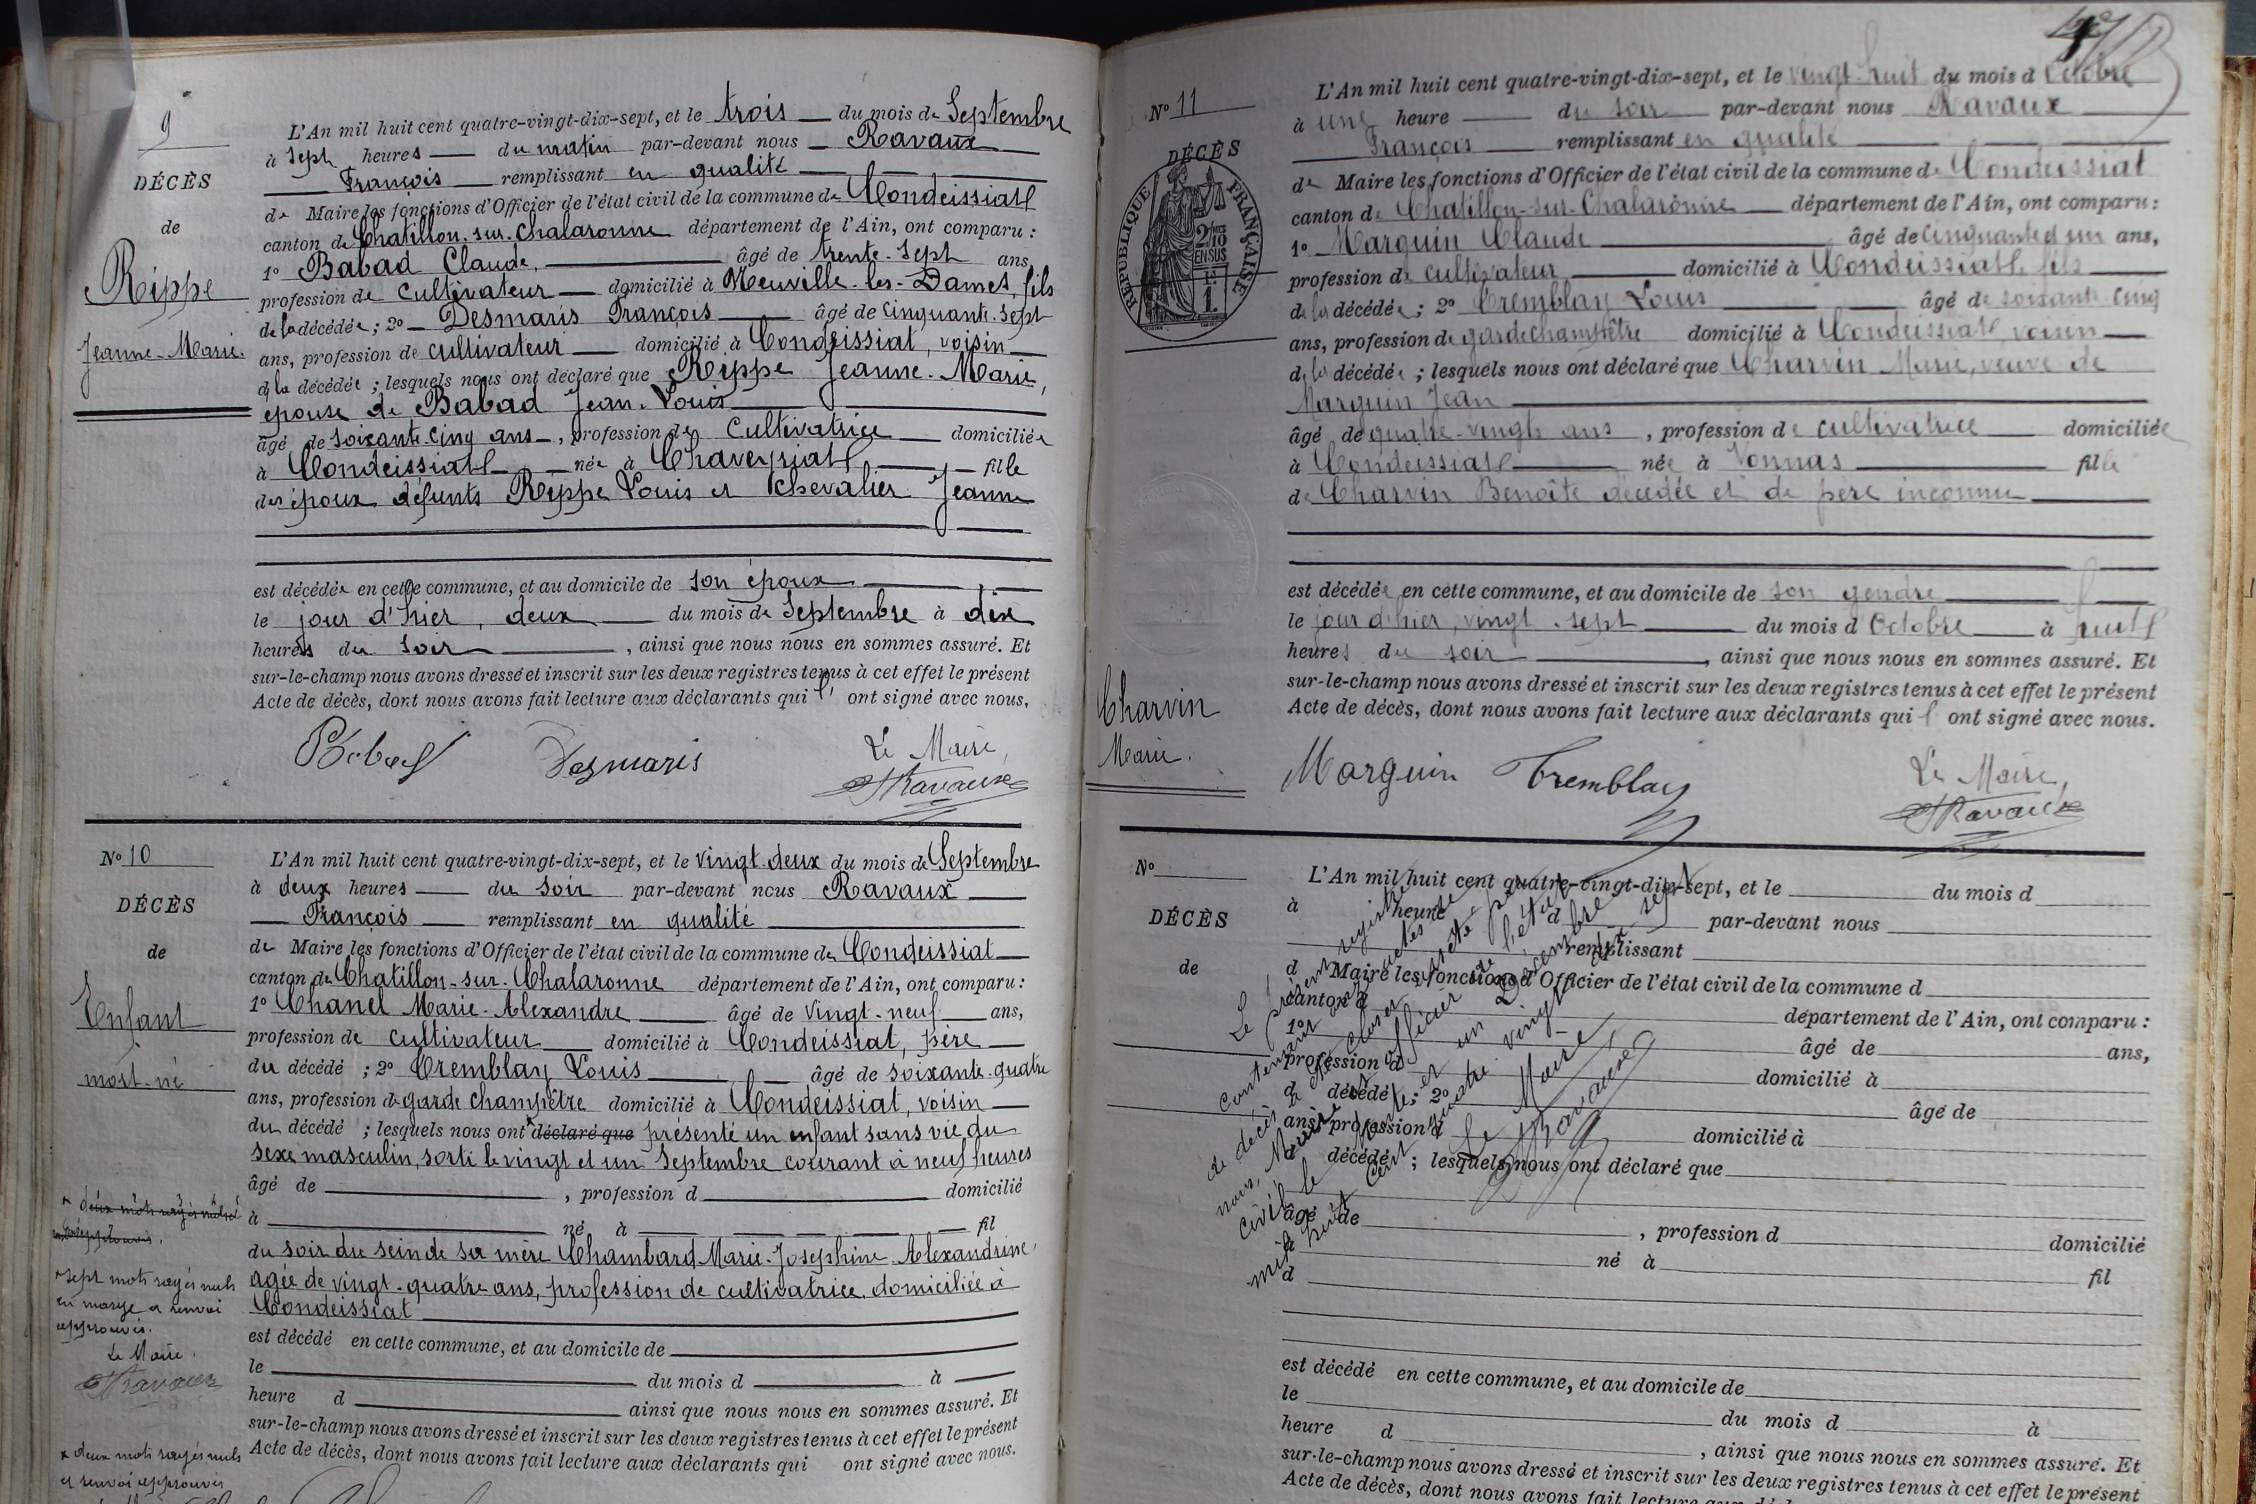 9
DÉCÈS
de
Rippe
Jeanne-Marie.
L'An mil huit cent quatre-vingt-dix-sept, et le trois du mois de Septembre
à sept heures du matin par-devant nous Ravaux
François remplissant en qualité
de Maire les fonctions d'Officier de l'état civil de la commune de Condeissiat
canton de Chatillon-sur-Chalaronne département de l'Ain, ont comparu :
1° Babad Claude, âgé de trente-sept ans,
profession de cultivateur domicilié à Neuville-les-Dames, fils
de la décédée ; 2° Desmaris François âgé de cinquante-sept
ans, profession de cultivateur domicilié à Condeissiat, voisin
de la décédée ; lesquels nous ont déclaré que Rippe Jeanne-Marie,
épouse de Babad Jean-Louis
âgé de soixante-cinq ans, profession de cultivatrice domiciliée
à Condeissiat née à Chaveyriat fille
des époux défunts Rippe Louis et Chevalier Jeanne
est décédée en cette commune, et au domicile de son époux
le jour d'hier, deux du mois de Septembre à dix
heures du soir, ainsi que nous nous en sommes assuré. Et
sur-le-champ nous avons dressé et inscrit sur les deux registres tenus à cet effet le présent
Acte de décès, dont nous avons fait lecture aux déclarants qui l' ont signé avec nous.
Babad Desmaris Le Maire,
Ravaux
N° 10
DÉCÈS
de
Enfant
mort-né
L'An mil huit cent quatre-vingt-dix-sept, et le vingt-deux du mois de Septembre
à deux heures du soir par-devant nous Ravaux
François remplissant en qualité
de Maire les fonctions d'Officier de l'état civil de la commune de Condeissiat
canton de Chatillon-sur-Chalaronne département de l'Ain, ont comparu :
1° Chanel Marie-Alexandre âgé de vingt-neuf ans,
profession de cultivateur domicilié à Condeissiat, père
du décédé ; 2° Tremblay Louis âgé de soixante-quatre
ans, profession de garde champêtre domicilié à Condeissiat, voisin
du décédé ; lesquels nous ont déclaré que présenté un enfant sans vie du
sexe masculin, sorti le vingt et un Septembre courant à neuf heures
âgé de , profession d domicilié
à né à fil
du soir du sein de sa mère Chambard Marie-Joséphine-Alexandrine,
agée de vingt-quatre ans, profession de cultivatrice, domiciliée à
Condeissiat
est décédé en cette commune, et au domicile de
le du mois d à
heure d ainsi que nous nous en sommes assuré. Et
sur-le-champ nous avons dressé et inscrit sur les deux registres tenus à cet effet le présent
Acte de décès, dont nous avons fait lecture aux déclarants qui ont signé avec nous.
deux mots rayés nuls
sept mots rayés nuls
en marge et renvoi
approuvés.
Le Maire.
Ravaux
x deux mots rayés nuls
et renvoi approuvés
N° 11
DÉCÈS
RÉPUBLIQUE FRANÇAISE
2/10 EN SUS
Charvin
Marie.
L'An mil huit cent quatre-vingt-dix-sept, et le vingt-huit du mois d Octobre
à une heure du soir par-devant nous Ravaux
François remplissant en qualité
de Maire les fonctions d'Officier de l'état civil de la commune de Condeissiat
canton de Chatillon-sur-Chalaronne département de l'Ain, ont comparu :
1° Marguin Claude âgé de cinquante et un ans,
profession de cultivateur domicilié à Condeissiat, fils
de la décédée ; 2° Tremblay Louis âgé de soixante-cinq
ans, profession de garde champêtre domicilié à Condeissiat, voisin
de la décédée ; lesquels nous ont déclaré que Charvin Marie, veuve de
Marguin Jean
âgé de quatre-vingts ans, profession de cultivatrice domiciliée
à Condeissiat née à Vonnas fille
de Charvin Benoîte décédée et de père inconnu
est décédée en cette commune, et au domicile de son gendre
le jour d'hier, vingt-sept du mois d Octobre à huit
heures du soir, ainsi que nous nous en sommes assuré. Et
sur-le-champ nous avons dressé et inscrit sur les deux registres tenus à cet effet le présent
Acte de décès, dont nous avons fait lecture aux déclarants qui l' ont signé avec nous.
Marguin Tremblay Le Maire,
Ravaux
N°
DÉCÈS
de
L'An mil huit cent quatre-vingt-dix-sept, et le du mois d
à heure d par-devant nous
remplissant
d Maire les fonctions d'Officier de l'état civil de la commune d
canton d département de l'Ain, ont comparu :
1° âgé de ans,
profession d domicilié à
d décédé ; 2° âgé de
ans, profession d domicilié à
d décédé ; lesquels nous ont déclaré que
âgé de , profession d domicilié
à né à fil
d
est décédé en cette commune, et au domicile de
le du mois d à
heure d , ainsi que nous nous en sommes assuré. Et
sur-le-champ nous avons dressé et inscrit sur les deux registres tenus à cet effet le présent
Acte de décès, dont nous avons fait lecture aux
Le présent registre
contenant onze actes
de décès a été clos et arrêté par
nous, Maire et officier de l'état
civil le trente et un Décembre
mil huit cent quatre vingt dix sept
Le Maire,
Ravaux